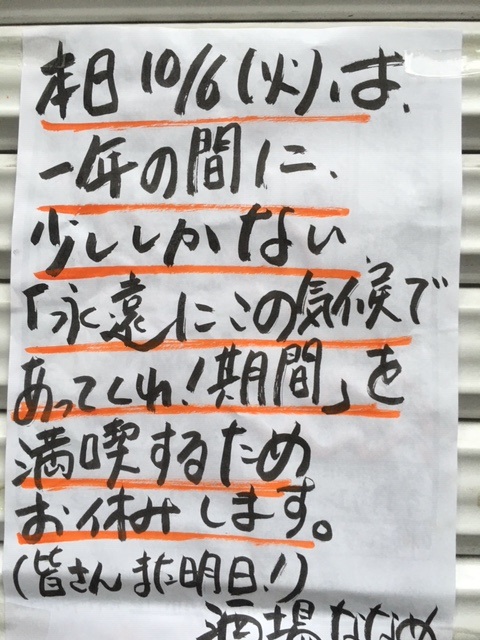 本日10/6(火)は、
一年の間に、
少ししかない
「永遠にこの気候で
あってくれ!期間」を
満喫するため
お休みします。
(皆さんまた明日!)
酒場ななめ